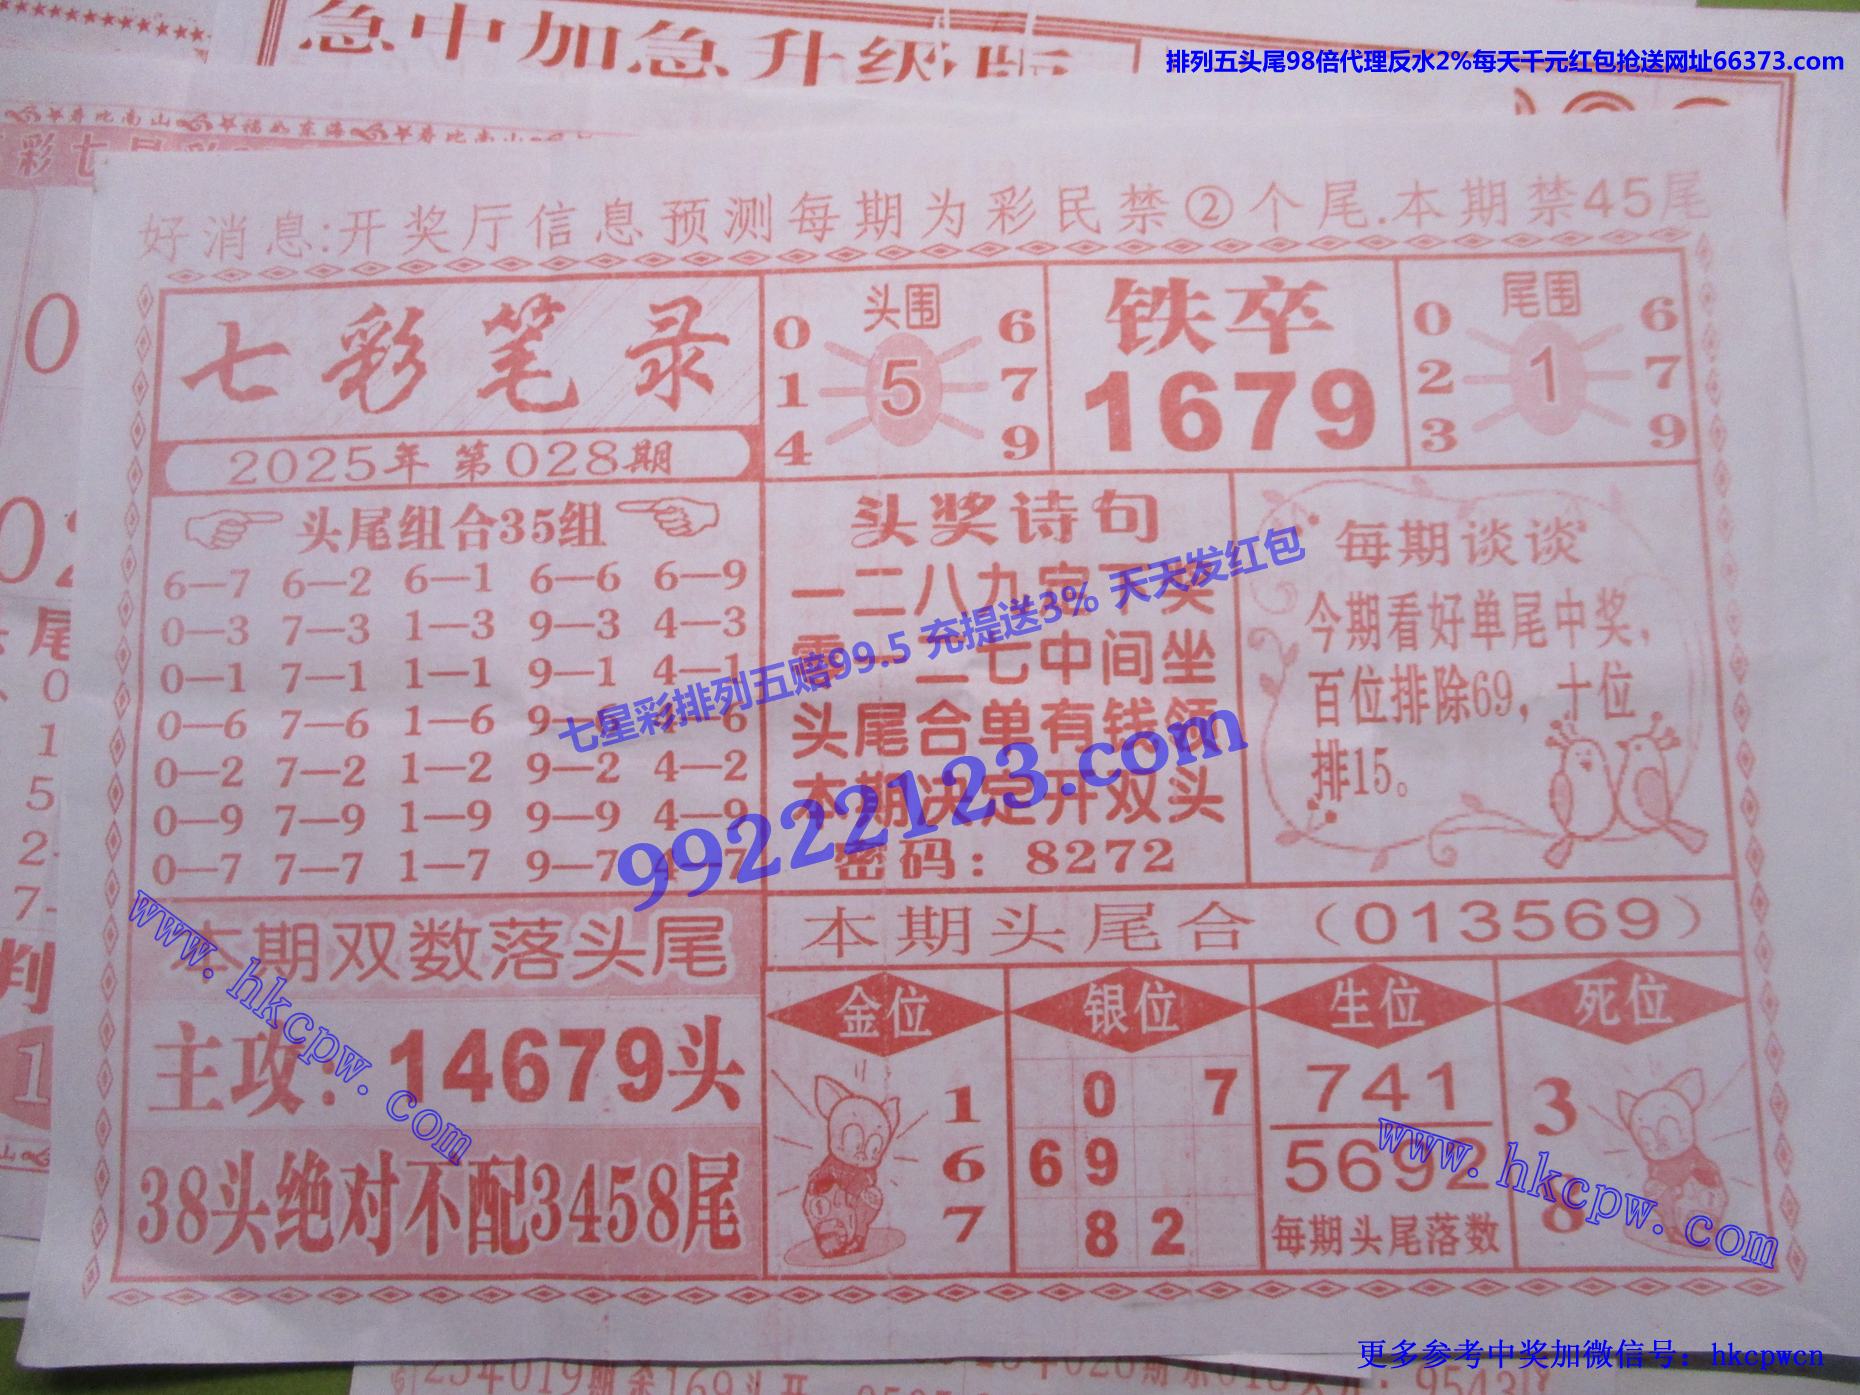 急中加急升级版
排列五头尾98倍代理反水2%每天千元红包抢送网址66373.com
寿比南山 福如东海 寿比南山
彩七星彩
好消息:开奖厅信息预测每期为彩民禁②个尾.本期禁45尾
七彩笔录
2025年 第028期
头围
0 6
1 5 7
4 9
铁卒
1679
尾围
0 6
2 1 7
3 9
头尾组合35组
6—7 6—2 6—1 6—6 6—9
0—3 7—3 1—3 9—3 4—3
0—1 7—1 1—1 9—1 4—1
0—6 7—6 1—6 9—6 4—6
0—2 7—2 1—2 9—2 4—2
0—9 7—9 1—9 9—9 4—9
0—7 7—7 1—7 9—7 4—7
头奖诗句
一二八九定下奖
零一二七中间坐
头尾合单有钱领
本期决定开双头
密码：8272
每期谈谈
今期看好单尾中奖，
百位排除69，十位
排15。
七星彩排列五赔99.5 充提送3% 天天发红包
99222123.com
本期双数落头尾
主攻：14679头
38头绝对不配3458尾
www.hkcpw.com
本期头尾合（013569）
金位
1
6
7
银位
0 7
6 9
8 2
生位
741
5692
每期头尾落数
死位
3
8
www.hkcpw.com
更多参考中奖加微信号：hkcpwcn